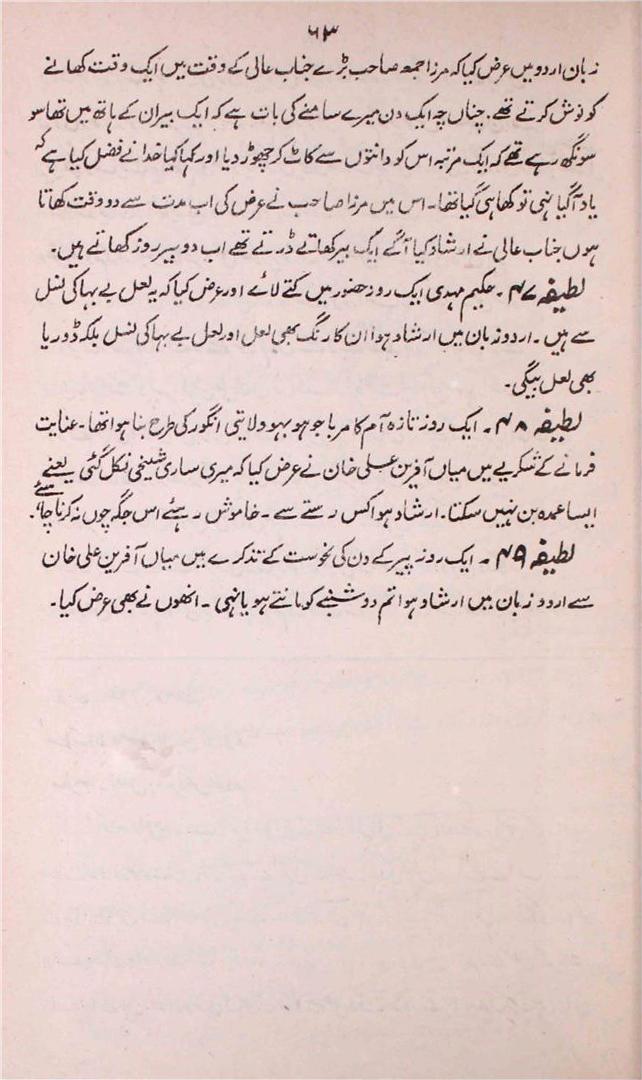 ۶۳
زبان اردو میں عرض کیا کہ مرزا جمعہ صاحب بڑے جناب عالی کے وقت میں ایک وقت کھانے
کو نوش کرتے تھے۔ چناں چہ ایک دن میرے سامنے کی بات ہے کہ ایک بیر ان کے ہاتھ میں تھا سو
سونگھ رہے تھے کہ ایک مرتبہ اس کو دانتوں سے کاٹ کر چھوڑ دیا اور کہا کیا خدا نے فضل کیا ہے کہ
یاد آگیا نہی تو کھا ہی گیا تھا۔ اس میں مرزا صاحب نے عرض کی اب مدت سے دو وقت کھاتا
ہوں جناب عالی نے ارشاد کیا آگے ایک بیر کھاتے ڈرتے تھے اب دو بیر روز کھاتے ہیں۔
لطیفہ ۴۷۔ حکیم مہدی ایک روز حضور میں کتے لائے اور عرض کیا کہ یہ لعل بے بہا کی نسل
سے ہیں۔ اردو زبان میں ارشاد ہوا ان کا رنگ بھی لعل اور لعل بے بہا کی نسل بلکہ ڈوریا
بھی لعل بیگی۔
لطیفہ ۴۸۔ ایک روز تازہ آم کا مربا جو ہو بہو ولایتی انگور کی طرح بنا ہوا تھا۔ عنایت
فرمانے کے شکریے میں میاں آفرین علی خان نے عرض کیا کہ میری ساری شیخی نکل گئی یعنے
ایسا عمدہ بن نہیں سکتا۔ ارشاد ہوا کس رستے سے۔ خاموش رہئے اس جگہ چوں نہ کرنا چاہئے۔
لطیفہ ۴۹۔ ایک روز پیر کے دن کی نحوست کے تذکرے میں میاں آفرین علی خان
سے اردو زبان میں ارشاد ہوا تم دو شنبے کو مانتے ہو یا نہی۔ انھوں نے بھی عرض کیا۔